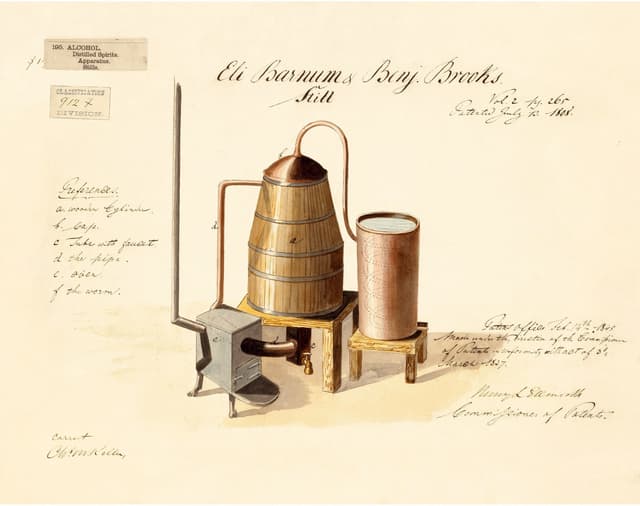 195. ALCOHOL,
Distilled Spirits.
Apparatus.
Stills.
CLASSIFICATION
912 +
DIVISION.
Eli Barnum & Benj. Brooks.
Still
Vol. 2 pg. 265
Patented July 13 1808.
References.
a. wooden Cylinder.
b. Cap.
c Tube with faucet
d. the pipe.
e. oven.
f the worm.
f
d
a
e
d
c
Patent office Feb. 19th 1845
Drawn under the direction of the Commissioner
of Patents in conformity with act of 3d
March 1837.
Henry L Ellsworth
Commissioner of Patents.
correct